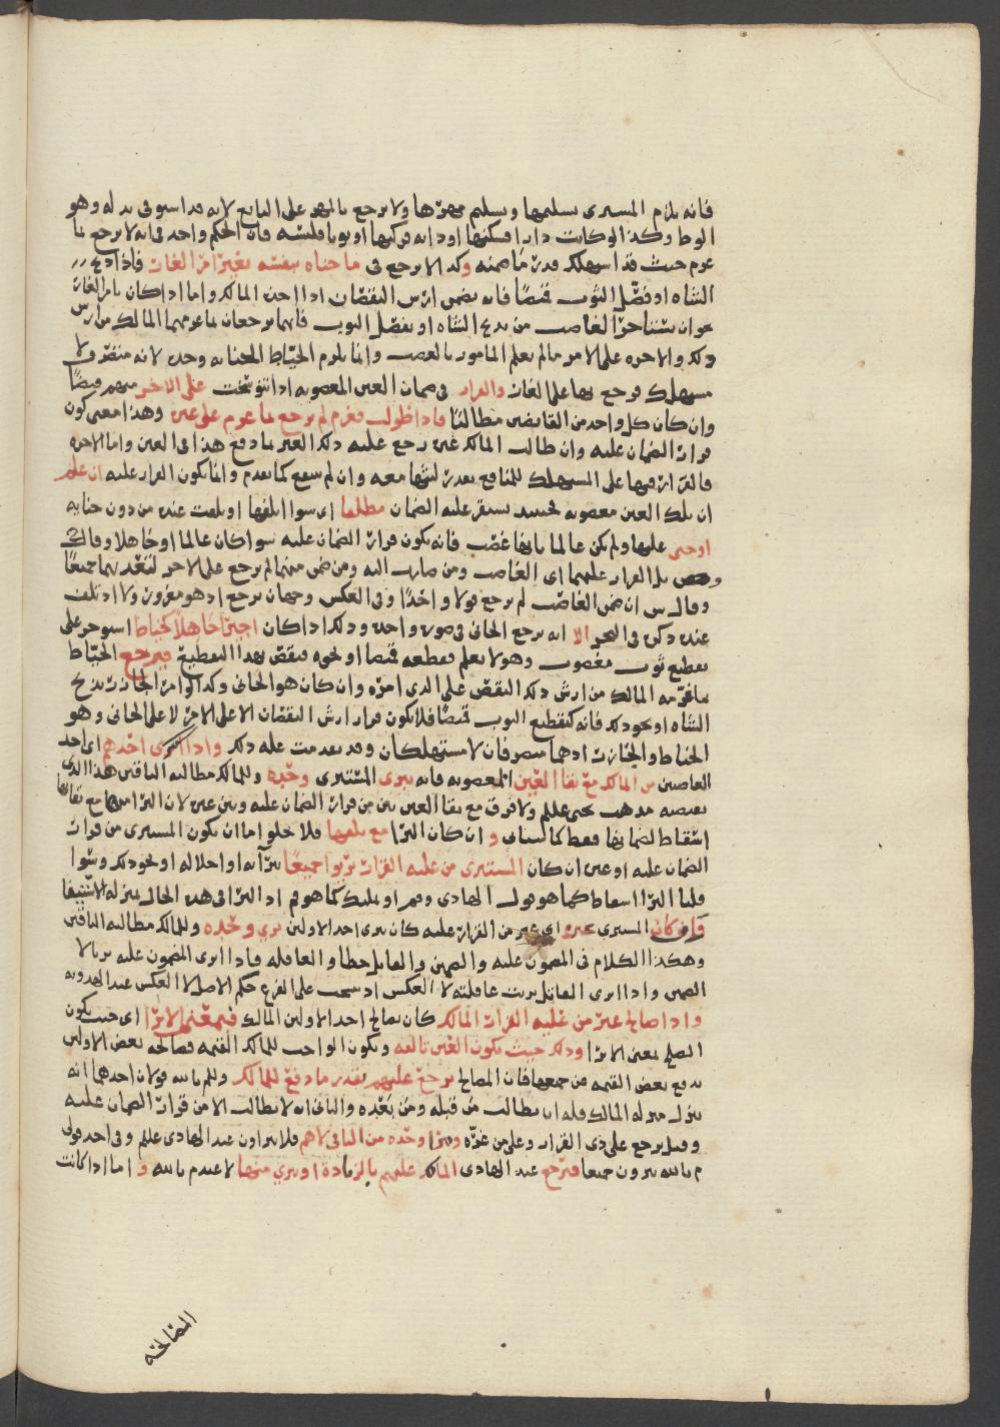 فانه يلزم المشترى تسليمها وتسليم مهرها ولا يرجع بالمهر على البايع لانه قد استوفى بدله وهو
الوطا وكذا لو كانت دارا فسكنها او دابه فركبها او ثوبا فلبسه فان الحكم واحد فى انه لا يرجع بما
غرم حيث قد استهلك قدر ما ضمنه وكذا لا يرجع فى ما جناه بنفسه بغير امر الغاصب فاذا ذبح
الشاه او فصل الثوب قميصا فانه يضمن ارش النقصان اذا اخذه المالك واما اذا كان بامر الغاصب
نحو ان يستاجر الغاصب من يذبح الشاه او يفصل الثوب فانهما يرجعان بما غرمهما المالك من ارش
ذلك والاجره على الامر مالم يعلم المامور بالغصب وانما يلزم الخياط المجنا به وحده لانه متصرف لا
مستهلك فيرجع بها على الغاصب والقرار فى ضمان العين المغصوبه اذا تنوسخت على الاخر منهم قبضا
وان كان كل واحد من القابضين مطالبا فاذا طولب فغرم لم يرجع بما غرم على غيره وهذا معنى كون
قرار الضمان عليه وان طالب المالك غيره رجع عليه ذلك الغير بما دفع هذا فى العين واما الاجره
فالقرار فيها على المستهلك للمنافع بقدر لبثها معه وان لم ينتفع كما تقدم وانما يكون القرار عليه ان علم
ان تلك العين مغصوبه فحينئذ يستقر عليه الضمان مطلقا اى سوا اتلفها او تلفت عنده من دون جنايه
او جنى عليها ولم يكن عالما بانها غصب فانه يكون قرار الضمان عليه سوا كان عالما او جاهلا وقال
بل القرار عليهما اى الغاصب ومن صارت اليه ومن ضمن منهما لم يرجع على الاخر لتعديهما جميعا
وقال ش ان ضمن الغاصب لم يرجع قولا واحدا وفى العكس وجهان يرجع اذ هو مغرور ولا اذ تلف
عنده ذكره فى البحر الا انه يرجع الجانى فى صوره واحده وذلك اذا كان اجيرا جاهلا كخياط استوجر على
تقطيع ثوب مغصوب وهو لا يعلم فقطعه قميصا او نحوه فنقص بهذا التقطيع فيرجع الخياط
بما غرمه المالك من ارش ذلك النقص على الذى امره وان كان هو الجانى وكذا لو امر الجازر بذبح
الشاه او نحو ذلك فانه كتقطيع الثوب قميصا فلا يكون قرار ارش النقصان الا على الامر لا على الجانى وهو
الخياط والجازر اذ هما متصرفان لا مستهلكان وقد تقدمت عله ذلك واذا ابرى احدهم اى احد
الغاصبين من المالك مع بقا العين المغصوبه فانه يبرى المشترى وحده وللمالك مطالبه الباقين هذا الذى
يقتضيه مذهب يحيى عليلم ولا فرق مع بقا العين بين من قرار الضمان عليه وبين غيره لان البرا منها مع بقائها
اسقاط لضمانها فقط كما سياتى و ان كان البرا مع تلفها فلا يخلو اما ان يكون المستبرى من قرار
الضمان عليه او غيره ان كان المستبرى من عليه القرار بريوا جميعا بابرائه او احلاله او نحو ذلك وسوا
قلنا البرا اسقاط كما هو قول الهادى وم او تمليك كما هو قم اذ البرا فى هذه الحال بمنزله الاستيفا
وان كان المستبرى غيره اى غير من القرار عليه كان يبرى احد الاولين برى وحده وللمالك مطالبه الباقين
وهكذا الكلام فى المضمون عليه والضمين والقاتل خطا والعاقله فاذا ابرى المضمون عليه برى لا
الضمين واذا ابرى القاتل بريت عاقلته لا العكس اذ ينسحب على الفرع حكم الاصل لا العكس عند الهدويه
واذا صالح غير من عليه القرار المالك كان يصالح احد الاولين المالك فبمعنى الابرا اى حيث يكون
الصلح بمعنى الابرا وذلك حيث تكون العين تالفه ويكون الواجب للمالك القيمه فصالحه بعض الاولين
بدفع بعض القيمه عن جميعها فان المصالح يرجع عليهم بقدر ما دفع للمالك وللم بالله قولان احدهما انه
ينزل منزله المالك فله ان يطالب من قبله ومن بعده والثانى انه لا يطالب الا من قرار الضمان عليه
وقيل يرجع على ذى القرار وعلى من غره ويبرا وحده من الباقى لا هم فلا يبراون عند الهادى عليلم وفى احد قولى
م بالله يبرون جميعا فيرجع عند الهادى المالك عليهم بالزيادة او يبرى منها لا عند م بالله و اما اذا كانت
المصالحه